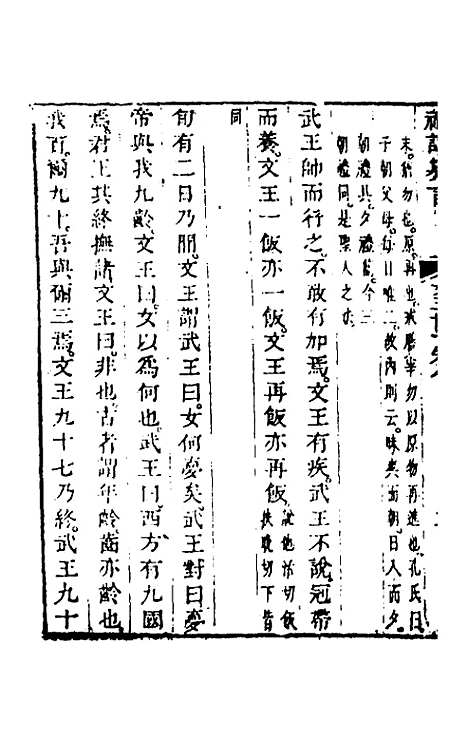 末。猶勿也。原。再也。末原。毋勿以原物再進也。孔氏曰。
子朝父母。每日唯二。故內則云。昧爽而朝。日入而夕。
朝禮具。夕禮簡。今三
朝禮同。是聖人之
武王帥而行之。不敢有加焉。文王有疾。武王不說冠帶
而養。文王一飯亦一飯。文王再飯亦再飯。說他活切飯
扶晚切下皆
同
旬有二日乃間。文王謂武王曰。女何夢矣。武王對曰夢
帝與我九齡。文王曰。女以爲何也。武王曰。西方有九國
焉。君王其終撫諸文王曰。非也。古者謂年齡。齒亦齡也。
我百。爾九十。吾與爾三焉。文王九十七乃終。武王九十